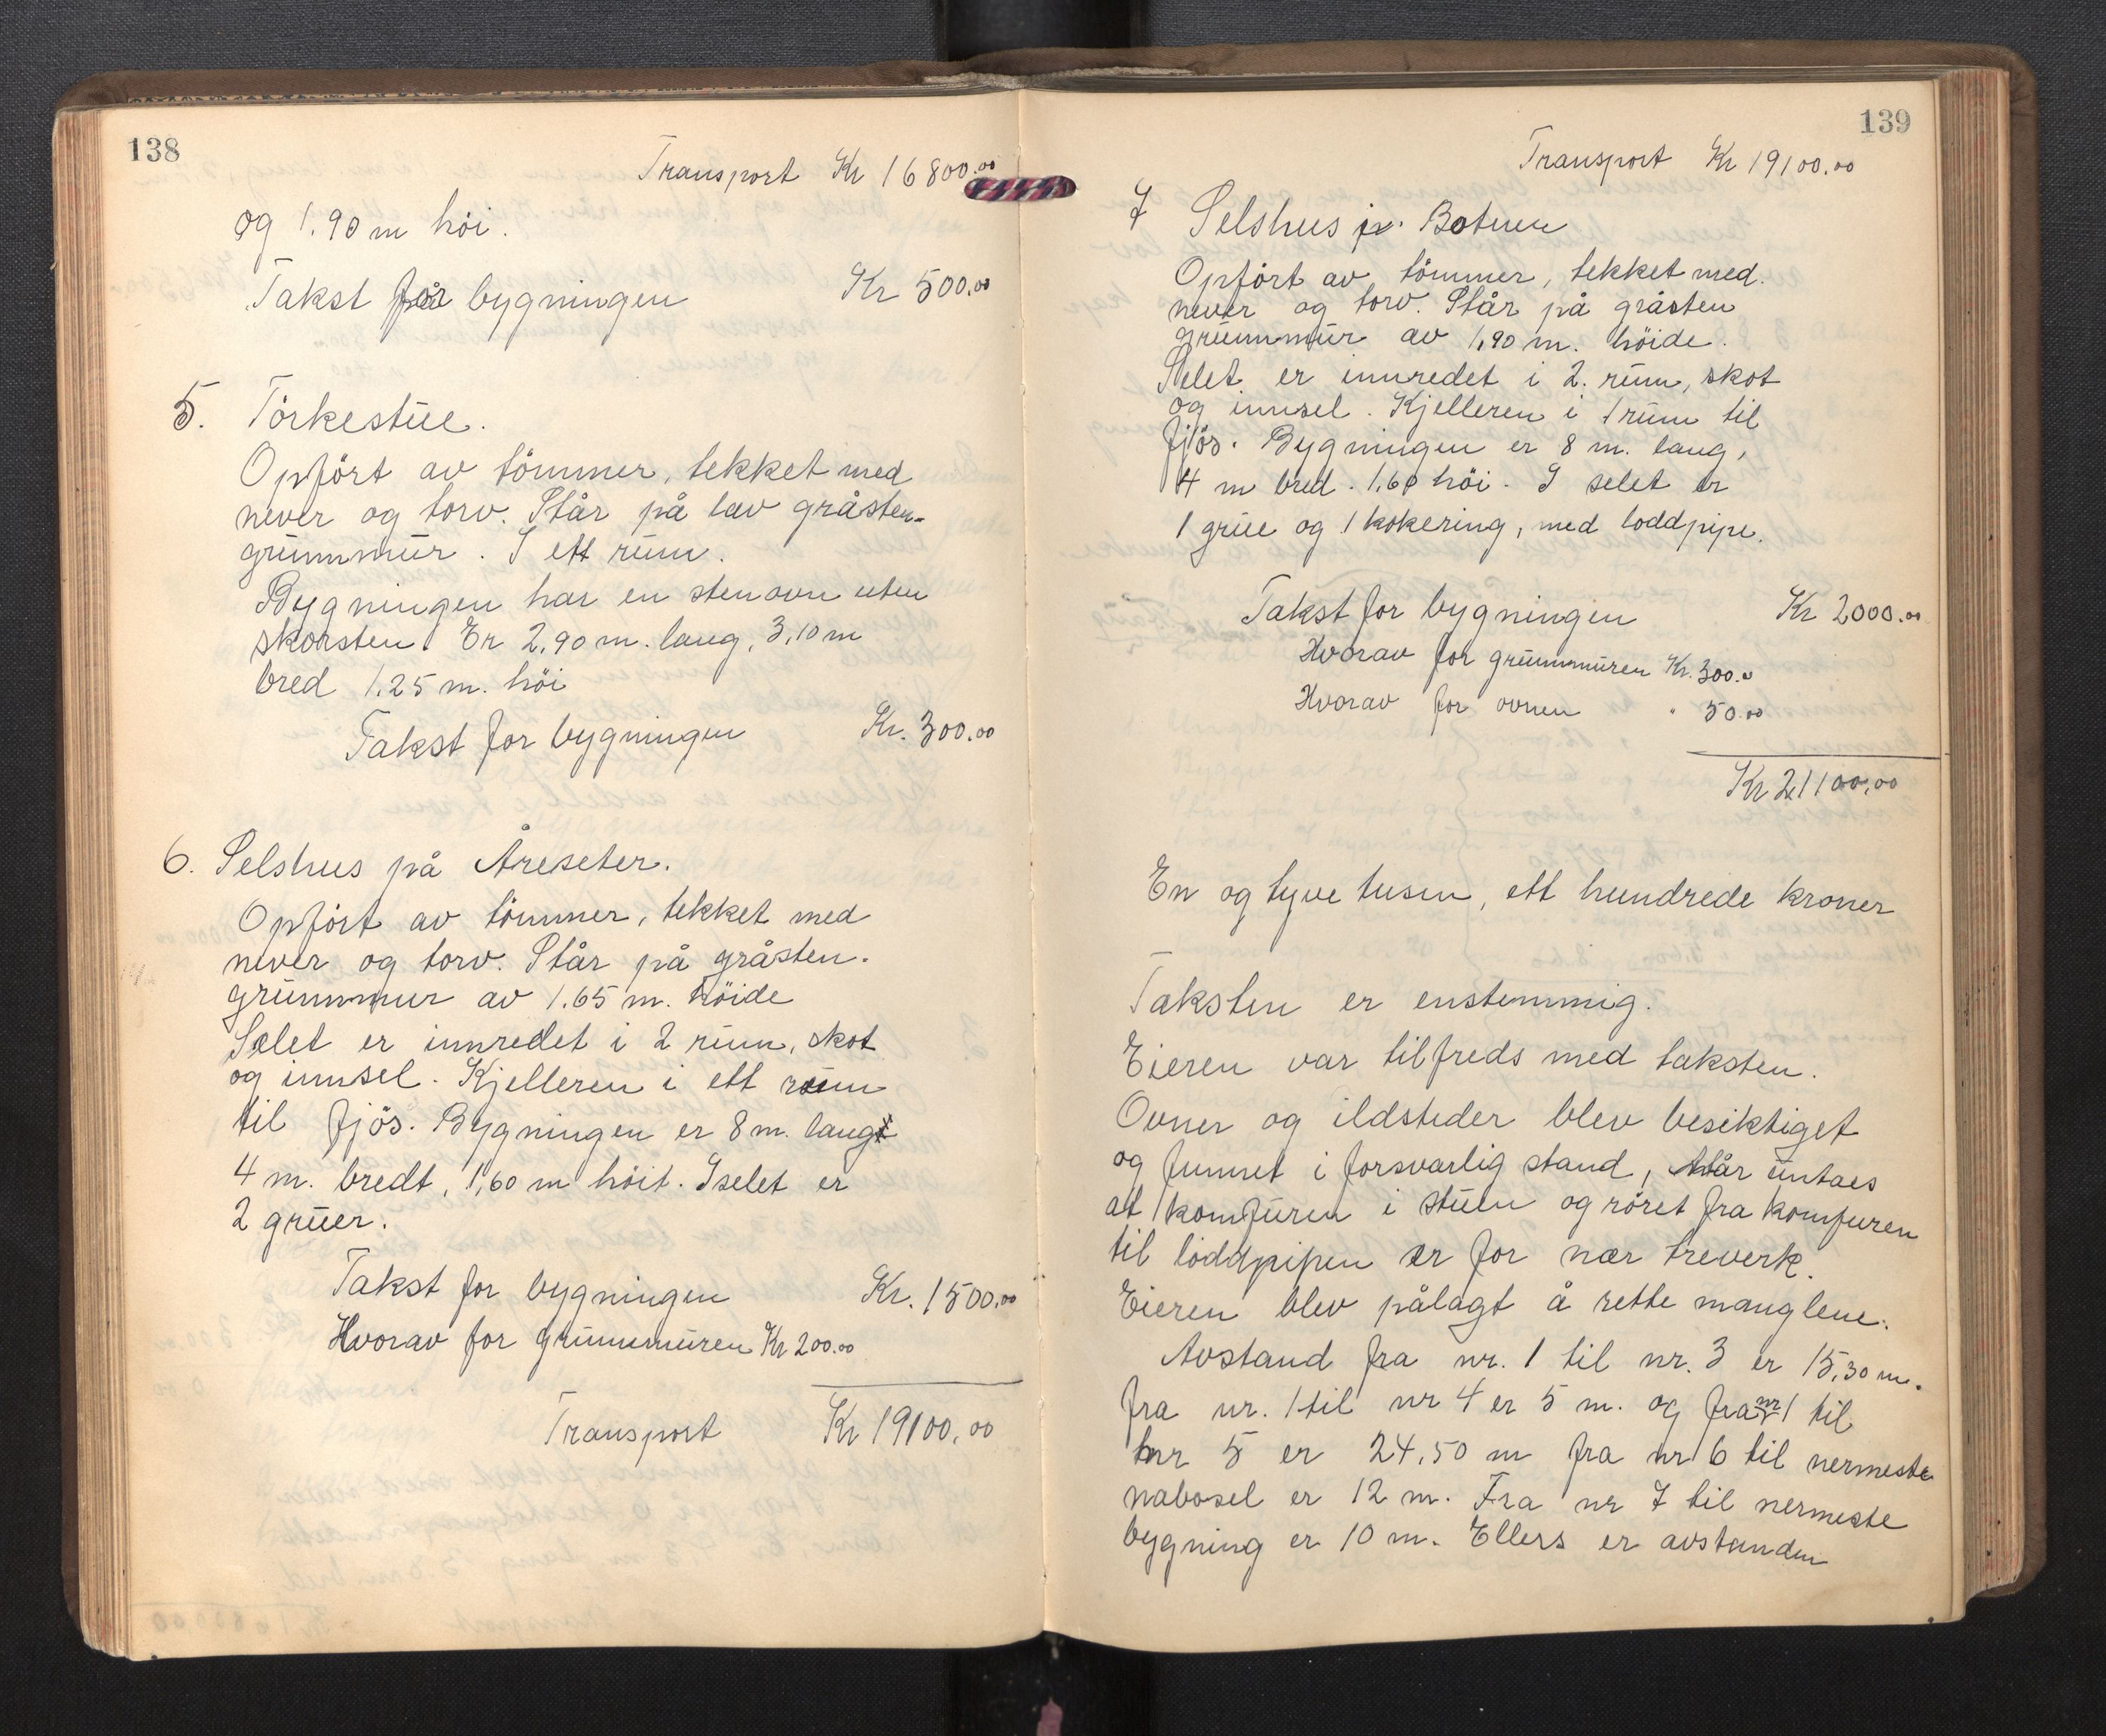 138
Transport Kr 16800.00
og 1.90 m höi.
Takst for bygningen Kr 500.00
5. Törkestue.
Opfört av tömmer, tekket med
never og torv. Står på lav gråsten-
grunnmur. I ett rum.
Bygningen har en stenovn uten
skorsten. Er 2,90 m. lang, 3,10 m
bred 1.25 m. höi
Takst for bygningen Kr. 300.00
6. Selshus på Åreseter.
Opfört av tömmer, tekket med
never og torv. Står på gråsten.
grunnmur av 1.65 m. höide
Selet er innredet i 2 rum, skot
og innsel. Kjelleren i ett rum
til fjös. Bygningen er 8 m. lang
4 m. bredt, 1,60 m höit. I selet er
2 gruer.
Takst for bygningen Kr. 1500.00
Hvorav for grunnmuren Kr 200.00
Transport Kr 19100.00
139
Transport Kr 19100.00
7 Selshus Botnen
Opfört av tömmer, tekket med.
never og torv. Står på gråsten
grunnmur av 1,90 m. höide.
Selet er innredet i 2. rum, skot
og innsel. Kjelleren i 1 rum til
fjös. Bygningen er 8 m. lang,
4 m bred. 1,60 höi. I selet er
1 grue og 1 kokering, med loddpipe.
Takst for bygningen Kr 2000.00
Hvorav for grunnmuren Kr. 300.0
Hvorav for ovnen " 50.00
Kr 21100.00
En og tyve tusen, ett hundrede kroner
Taksten er enstemmig.
Eieren var tilfreds med taksten.
Ovner og ildsteder blev besiktiget
og funnet i forsvarlig stand, når untaes
at komfuren i stuen og röret fra komfuren
til loddpipen er for nær treverk.
Eieren blev pålagt å rette manglene.
Avstand fra nr. 1 til nr. 3 er 15,30 m.
fra nr. 1 til nr 4 er 5 m. og fra nr 1 til
nr 5 er 24.50 m fra nr 6 til nermeste
nabosel er 12 m. Fra nr 7 til nermeste
bygning er 10 m. Ellers er avstanden